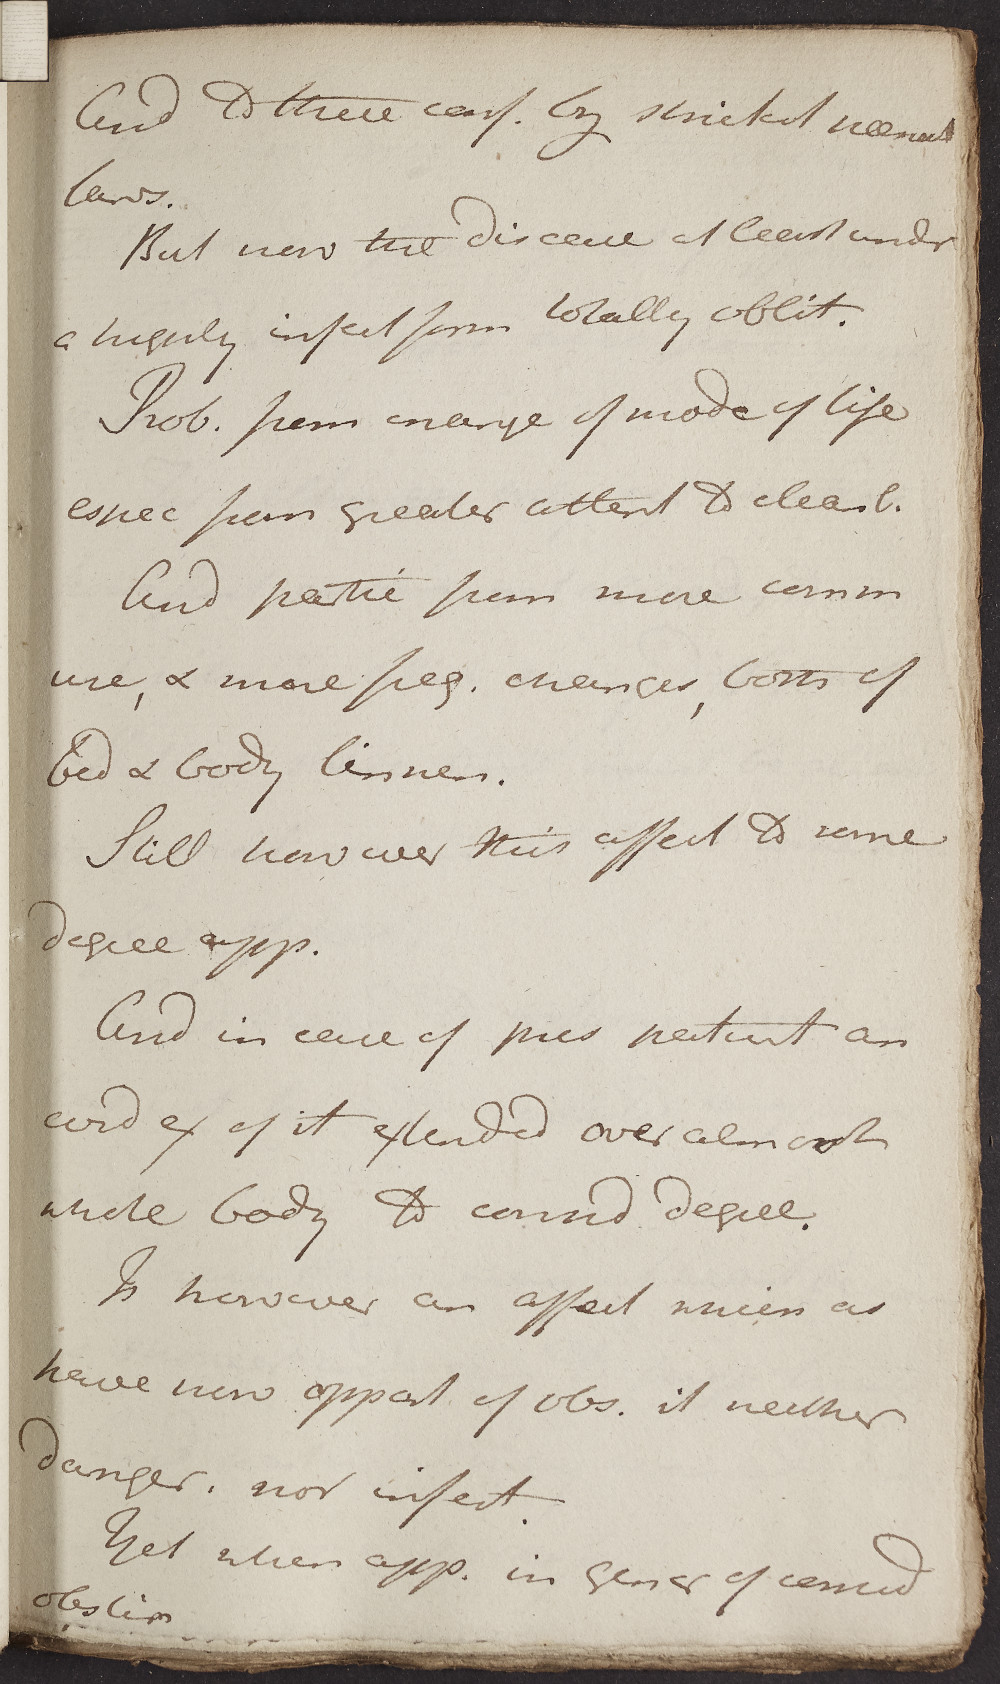 And to these conf. by strictest
laws.
But now the disease at least under
a highly infect form totally oblit.
Prob. from change of mode of life
espec from greater attent to cleanl.
And partic from more comm
use, & more freq. changes, both of
bed & body linnen.
Still however this affect to some
degree app.
And in case of pres patient an
evid ex of it extended over almost
whole body to consid degree.
Is however an affect which as
have now opport of obs. is neither
danger. nor infect.
Yet when app. in gener of consid
obstin